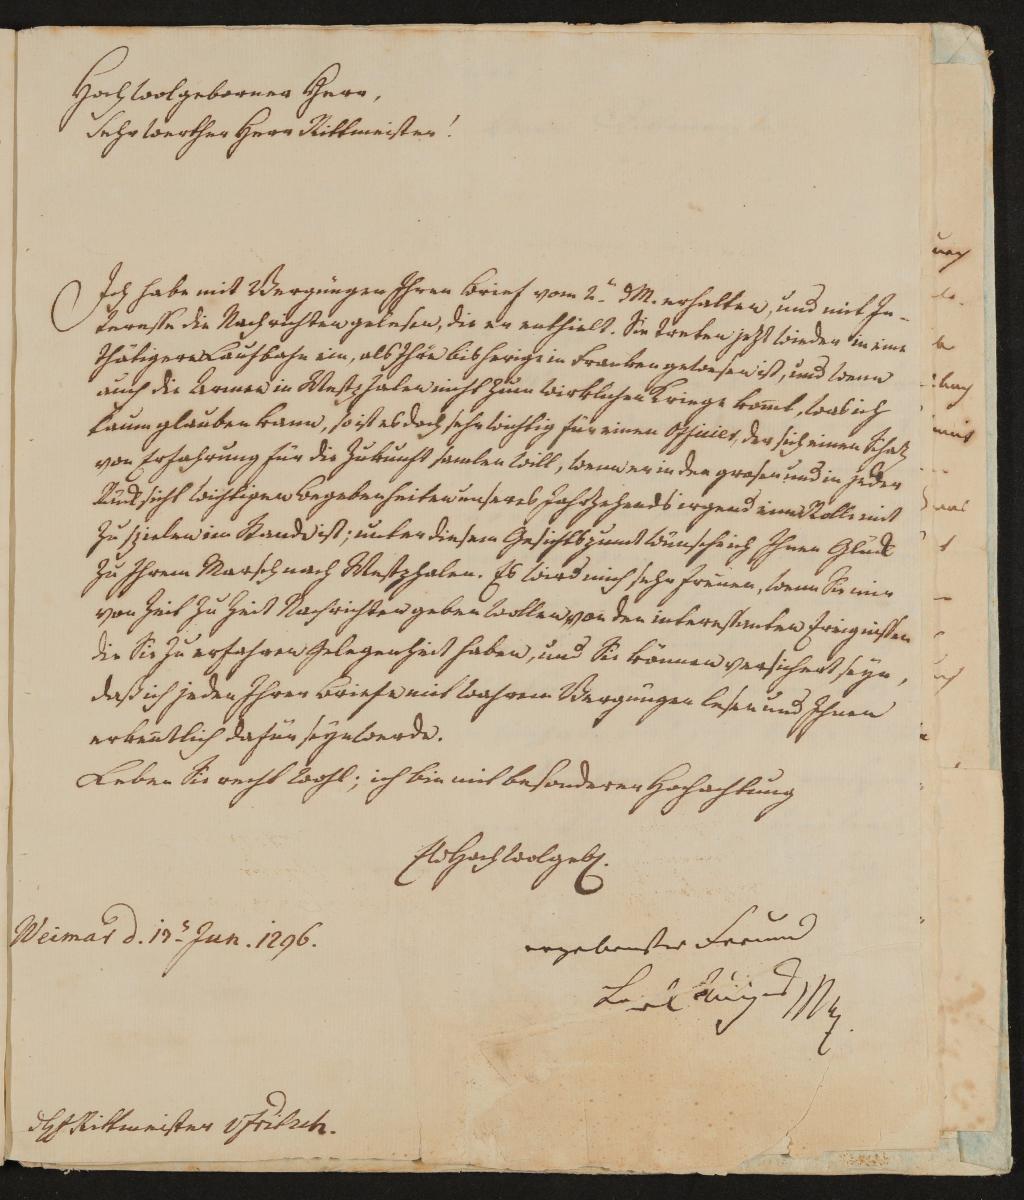 Hochwolgeborner Herr,
Sehr werther Herr Rittmeister!
Ich habe mit Vergnügen Ihren Brief vom 2. d M. erhalten, und mit In-
teresse die Nachrichten gelesen, die er enthielt. Sie treten jetzt wieder in eine
thätigere Laufbahn ein, als Ihre bisherige in Franken gewesen ist, und wenn
auch die Armee in Westphalen nicht zum wirklichen Kriege komt, was ich
kaum glauben kann, so ist es doch sehr wichtig für einen Officier, der sich einen Schatz
von Erfahrung für die Zukunft samlen will, wenn er in den grosen und in jeder
Rücksicht wichtigen Begebenheiten unseres Jahrzehends irgend eine Rolle mit
zu spielen im Stande ist; unter diesem Gesichtspunct wünsche ich Ihnen Glück
zu Ihrem Marsch nach Westphalen. Es wird mich sehr freuen, wenn Sie mir
von Zeit zu Zeit Nachrichten geben wollen, von den interessanten Ereignissen
die Sie zu erfahren Gelegenheit haben, und Sie können versichert seyn,
daß ich jeden Ihrer Briefe mit wahrem Vergnügen lesen und Ihnen
erkentlich dafür seyn werde.
Leben Sie recht wohl; ich bin mit besonderer Hochachtung
Ew Hochwolgeb.
Weimar d. 17. Jun. 1796.
ergebenster Freund
Carl August
Rittmeister v Fritsch.